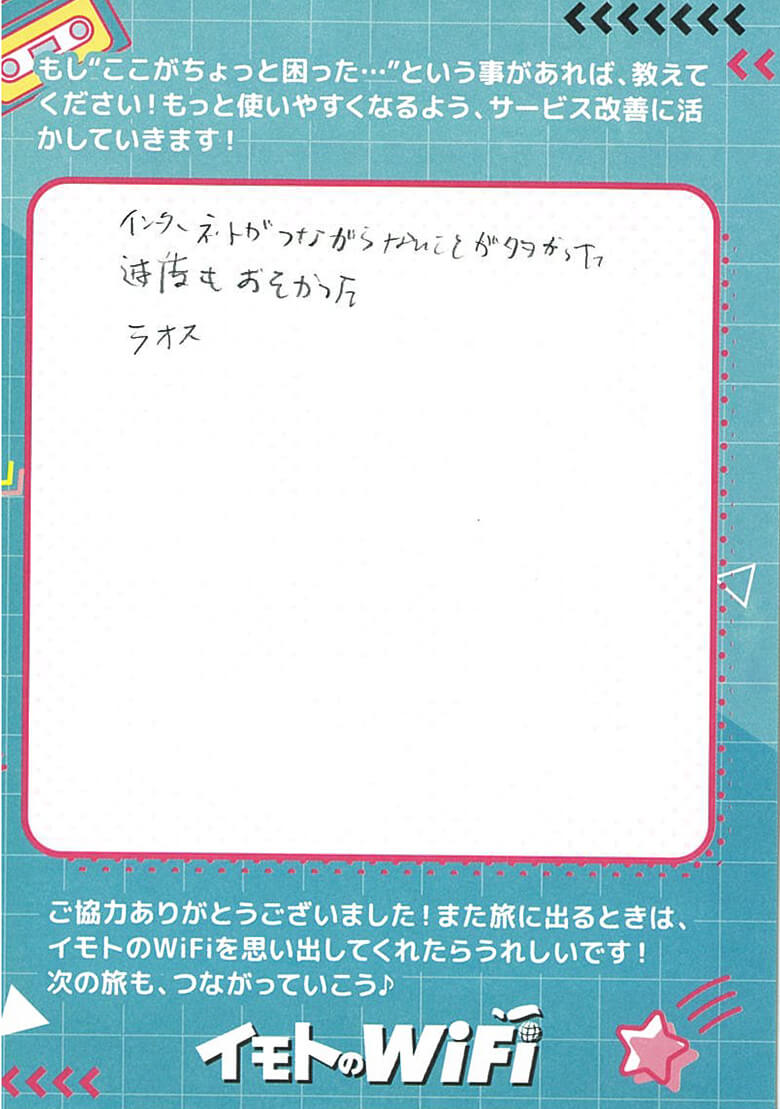 もし“ここがちょっと困った…”という事があれば、教えて
ください！もっと使いやすくなるよう、サービス改善に活
かしていきます！
インターネットがつながらないことが多かった
速度もおそかった
ラオス
ご協力ありがとうございました！また旅に出るときは、
イモトのWiFiを思い出してくれたらうれしいです！
次の旅も、つながっていこう♪
イモトのWiFi